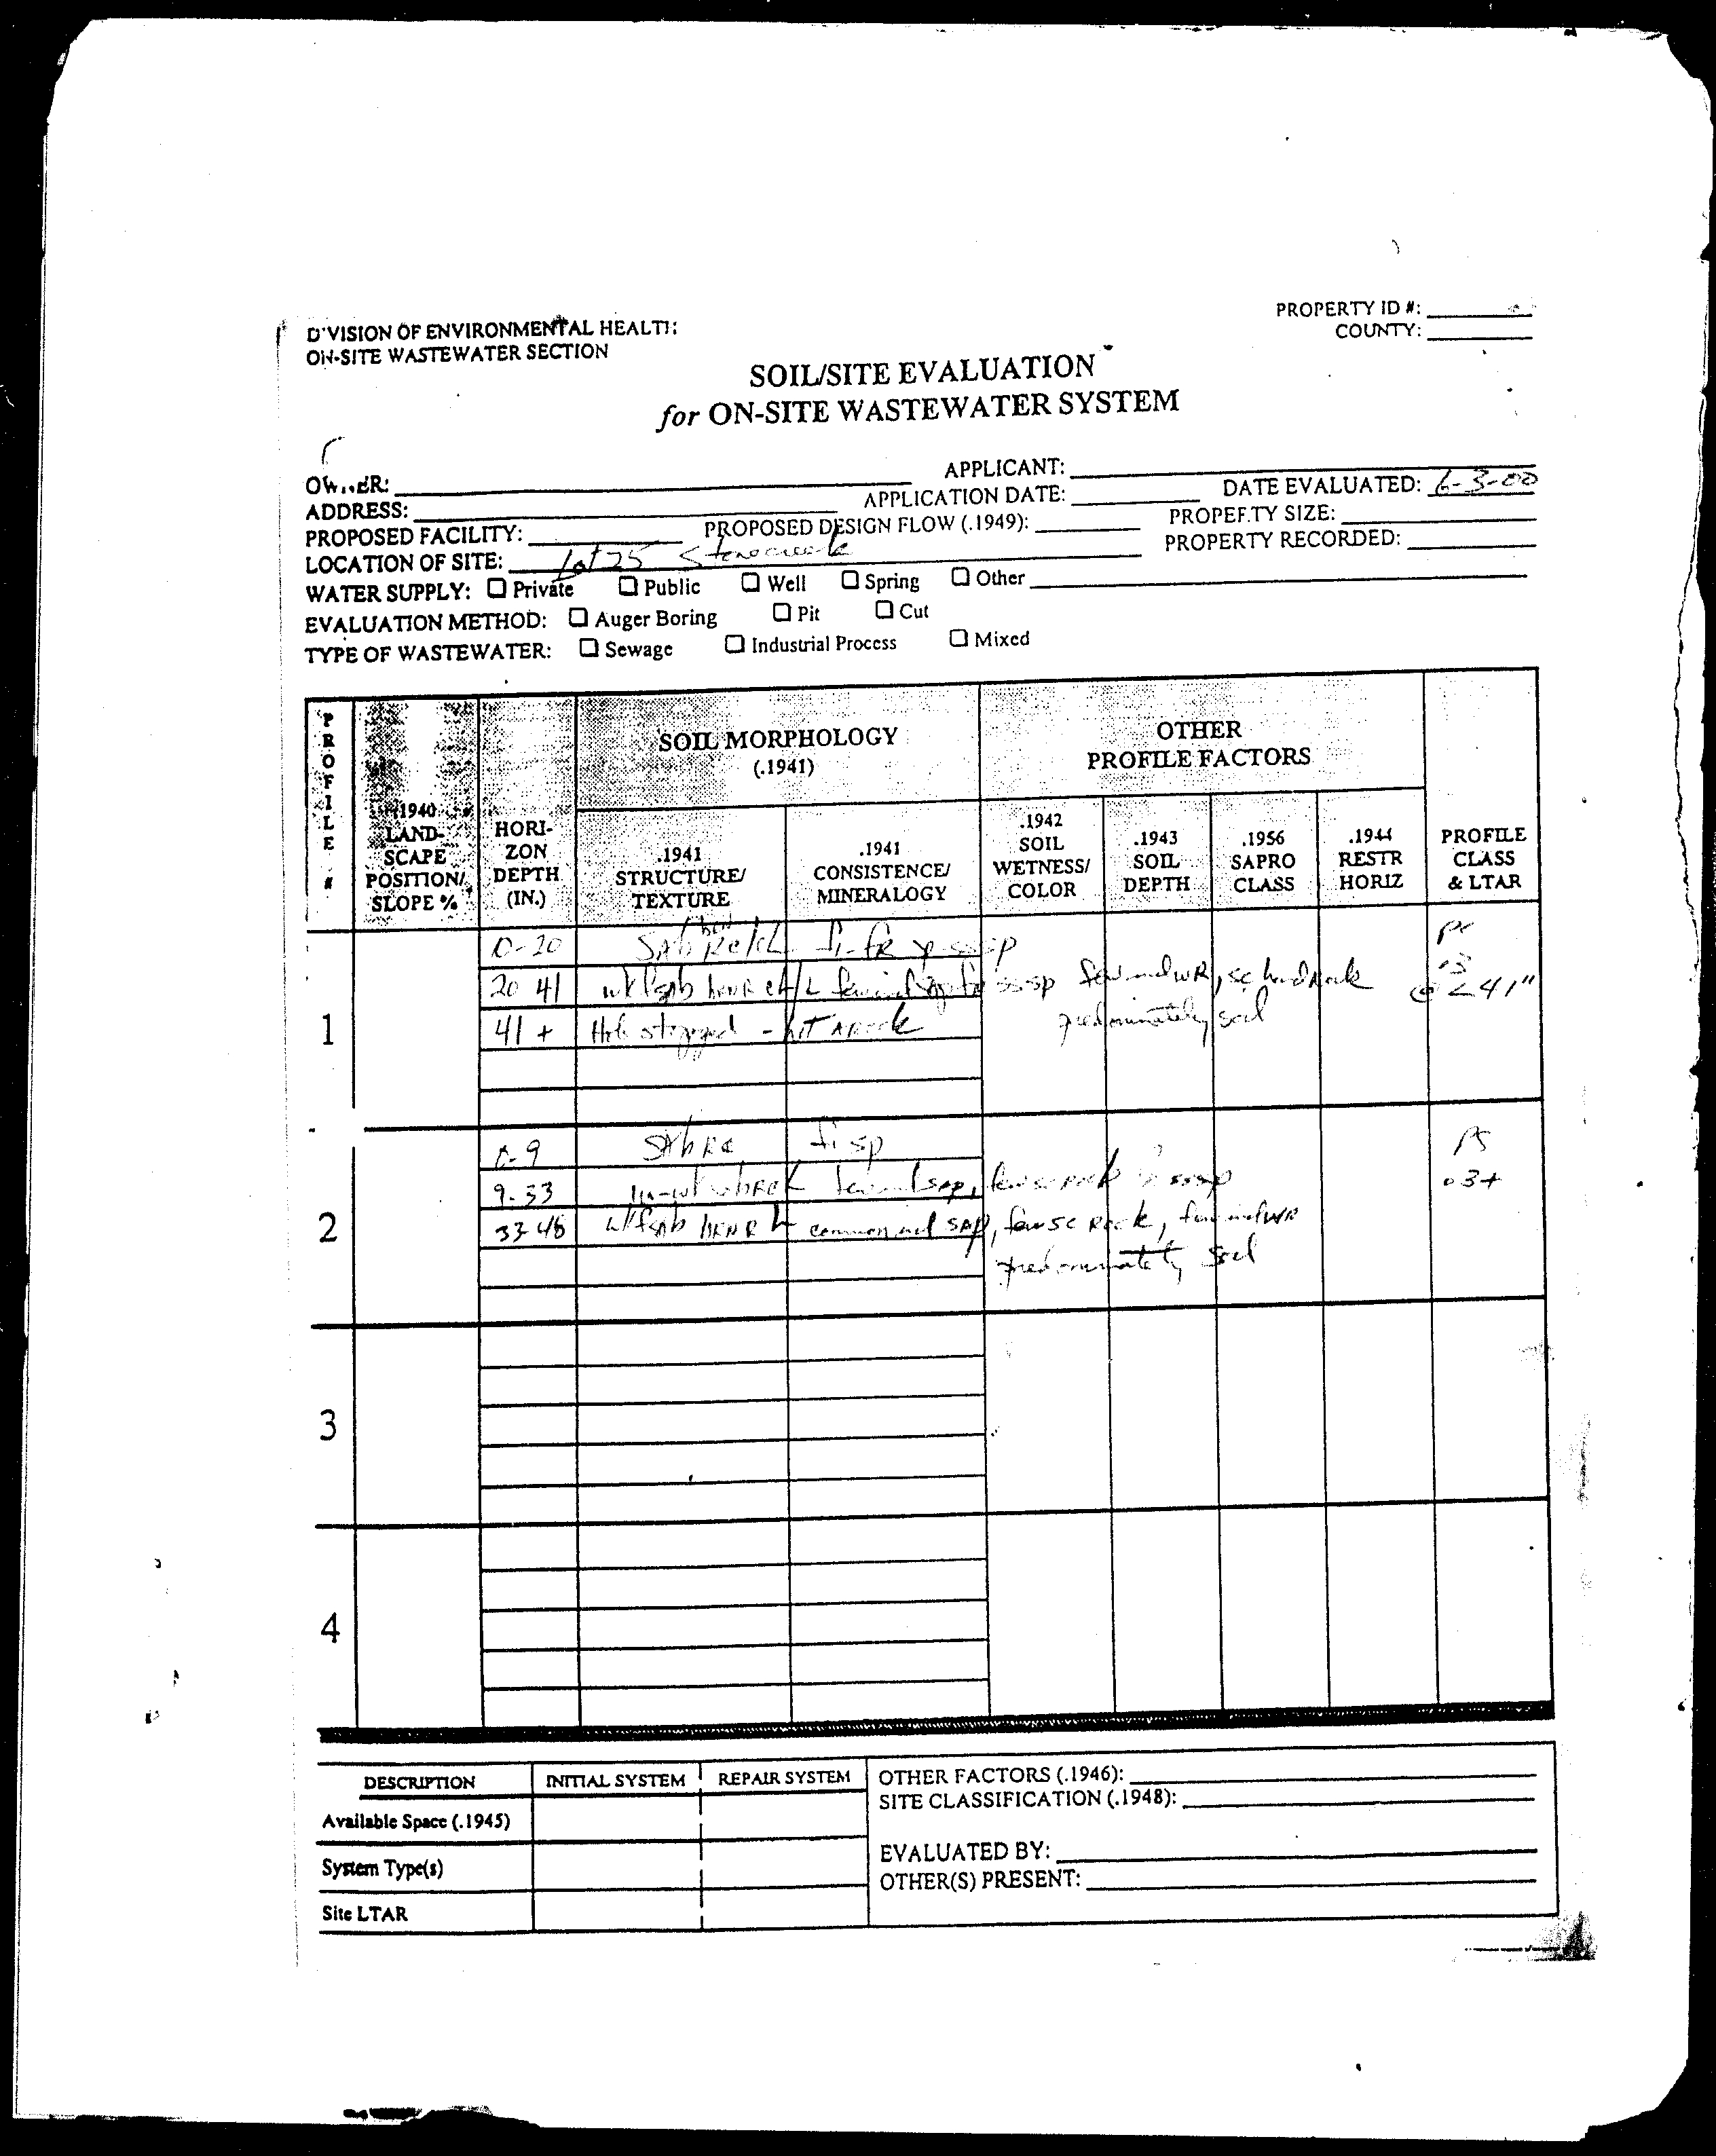 PROPERTY ID #:
COUNTY:
D'VISION OF ENVIRONMENTAL HEALTH
ON-SITE WASTEWATER SECTION
SOIL/SITE EVALUATION
for ON-SITE WASTEWATER SYSTEM
OWNER: APPLICANT:
ADDRESS: APPLICATION DATE: DATE EVALUATED: 6-3-00
PROPOSED FACILITY: PROPOSED DESIGN FLOW (.1949): PROPERTY SIZE:
LOCATION OF SITE: Lot 25 Stonecreek PROPERTY RECORDED:
WATER SUPPLY: ☐ Private ☐ Public ☐ Well ☐ Spring ☐ Other
EVALUATION METHOD: ☐ Auger Boring ☐ Pit ☐ Cut
TYPE OF WASTEWATER: ☐ Sewage ☐ Industrial Process ☐ Mixed
PROFILE #
.1940 LAND-SCAPE POSITION/ SLOPE %
HORI-ZON DEPTH (IN.)
SOIL MORPHOLOGY (.1941)
.1941 STRUCTURE/ TEXTURE
.1941 CONSISTENCE/ MINERALOGY
OTHER PROFILE FACTORS
.1942 SOIL WETNESS/ COLOR
.1943 SOIL DEPTH
.1956 SAPRO CLASS
.1944 RESTR HORIZ
PROFILE CLASS & LTAR
1
0-20 fi-fr
20 41 few ind WR, sc hard Rock
predominately soil
.3
@ <41"
41 + Hole stopped - hit A rock
2
0-9 fi sp PS
9-33 .3+
33-48 common ind SAP, few sc Rock, few ind WR
predominately soil
3
4
DESCRIPTION INITIAL SYSTEM REPAIR SYSTEM
Available Space (.1945)
System Type(s)
Site LTAR
OTHER FACTORS (.1946):
SITE CLASSIFICATION (.1948):
EVALUATED BY:
OTHER(S) PRESENT: